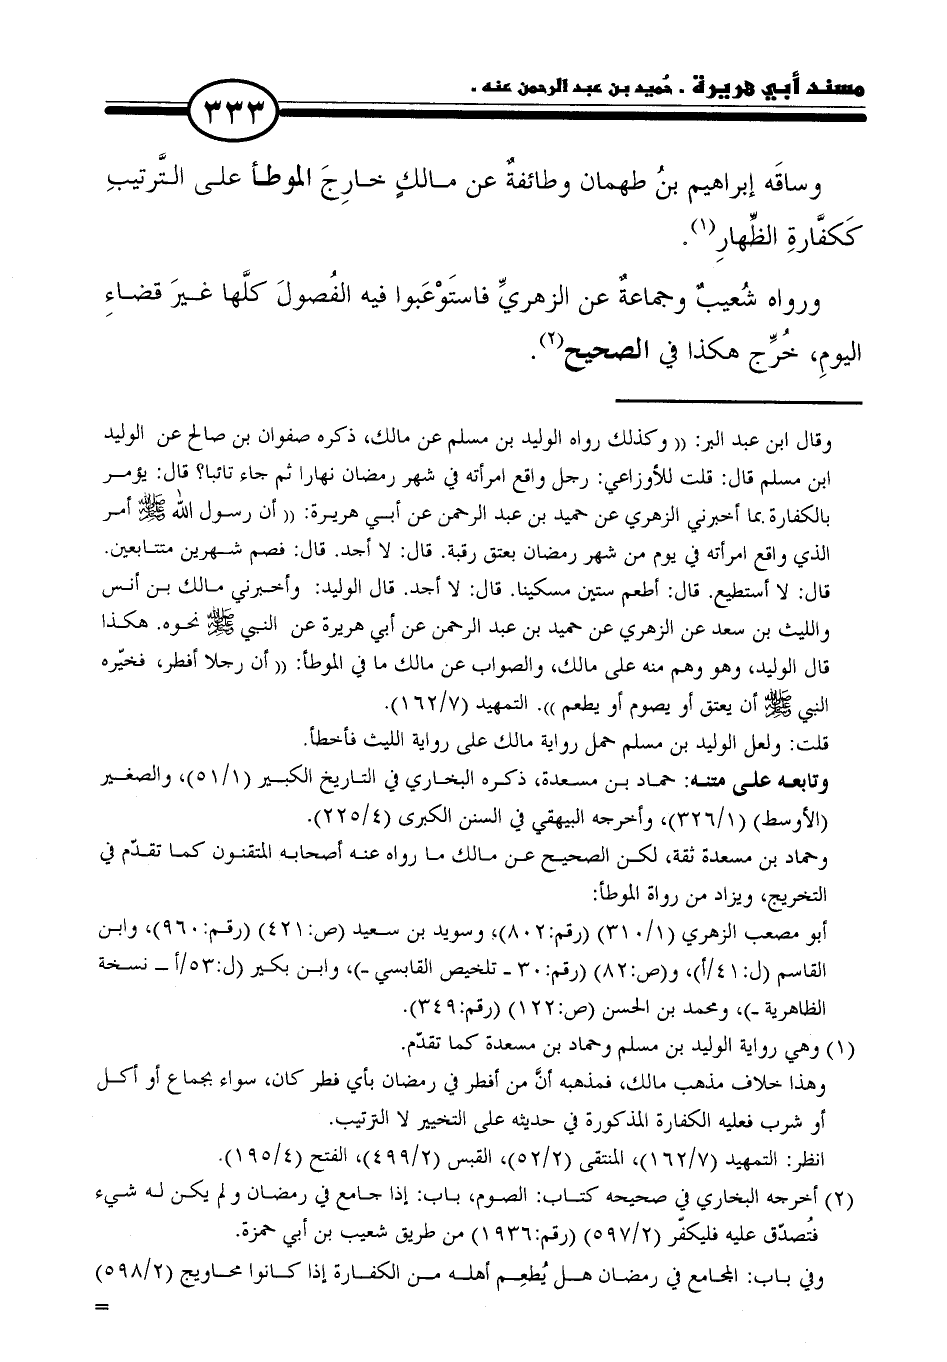 مسند أبي هريرة . حُميد بن عبد الرحمن عنه .
٣٣٣
وساقَه إبراهيم بنُ طهمان وطائفةٌ عن مالكٍ خارِجَ الموطأ على التَّرتيبِ
كَكفَّارةِ الظِّهارِ(١).
ورواه شُعيبٌ وجماعةٌ عن الزهريِّ فاستَوْعَبوا فيه الفُصولَ كلَّها غيرَ قضاءِ
اليومِ، خُرِّج هكذا في الصحيح(٢).
وقال ابن عبد البر: (( وكذلك رواه الوليد بن مسلم عن مالك، ذكره صفوان بن صالح عن الوليد
ابن مسلم قال: قلت للأوزاعي: رجل واقع امرأته في شهر رمضان نهارا ثم جاء تائبا؟ قال: يؤمر
بالكفارة بما أخبرني الزهري عن حميد بن عبد الرحمن عن أبي هريرة: (( أن رسول الله ﷺ أمر
الذي واقع امرأته في يوم من شهر رمضان بعتق رقبة. قال: لا أجد. قال: فصم شهرين متتابعين.
قال: لا أستطيع. قال: أطعم ستين مسكينا. قال: لا أجد. قال الوليد: وأخبرني مالك بن أنس
والليث بن سعد عن الزهري عن حميد بن عبد الرحمن عن أبي هريرة عن النبي ﷺ نحوه. هكذا
قال الوليد، وهو وهم منه على مالك، والصواب عن مالك ما في الموطأ: (( أن رجلا أفطر، فخيّره
النبي ﷺ أن يعتق أو يصوم أو يطعم )). التمهيد (١٦٢/٧).
قلت: ولعل الوليد بن مسلم حمل رواية مالك على رواية الليث فأخطأ.
وتابعه على متنه: حماد بن مسعدة، ذكره البخاري في التاريخ الكبير (٥١/١)، والصغير
(الأوسط) (٣٢٦/١)، وأخرجه البيهقي في السنن الكبرى (٢٢٥/٤).
وحماد بن مسعدة ثقة، لكن الصحيح عن مالك ما رواه عنه أصحابه المتقنون كما تقدّم في
التخريج، ويزاد من رواة الموطأ:
أبو مصعب الزهري (٣١٠/١) (رقم:٨٠٢)، وسويد بن سعيد (ص:٤٢١) (رقم:٩٦٠)، وابن
القاسم (ل:٤١/أ)، و(ص:٨٢) (رقم:٣٠ ـ تلخيص القابسي ـ)، وابن بكير (ل:٥٣/أ ـ نسخة
الظاهرية ـ)، ومحمد بن الحسن (ص:١٢٢) (رقم:٣٤٩).
(١) وهي رواية الوليد بن مسلم وحماد بن مسعدة كما تقدّم.
وهذا خلاف مذهب مالك، فمذهبه أنَّ من أفطر في رمضان بأي فطر كان، سواء بجماع أو أكل
أو شرب فعليه الكفارة المذكورة في حديثه على التخيير لا الترتيب.
انظر: التمهيد (١٦٢/٧)، المنتقى (٥٢/٢)، القبس (٤٩٩/٢)، الفتح (١٩٥/٤).
(٢) أخرجه البخاري في صحيحه كتاب: الصوم، باب: إذا جامع في رمضان و لم يكن له شيء
فتُصدّق عليه فليكفّر (٥٩٧/٢) (رقم:١٩٣٦) من طريق شعيب بن أبي حمزة.
وفي باب: المجامع في رمضان هل يُطعِم أهله من الكفارة إذا كانوا محاويج (٥٩٨/٢)
=